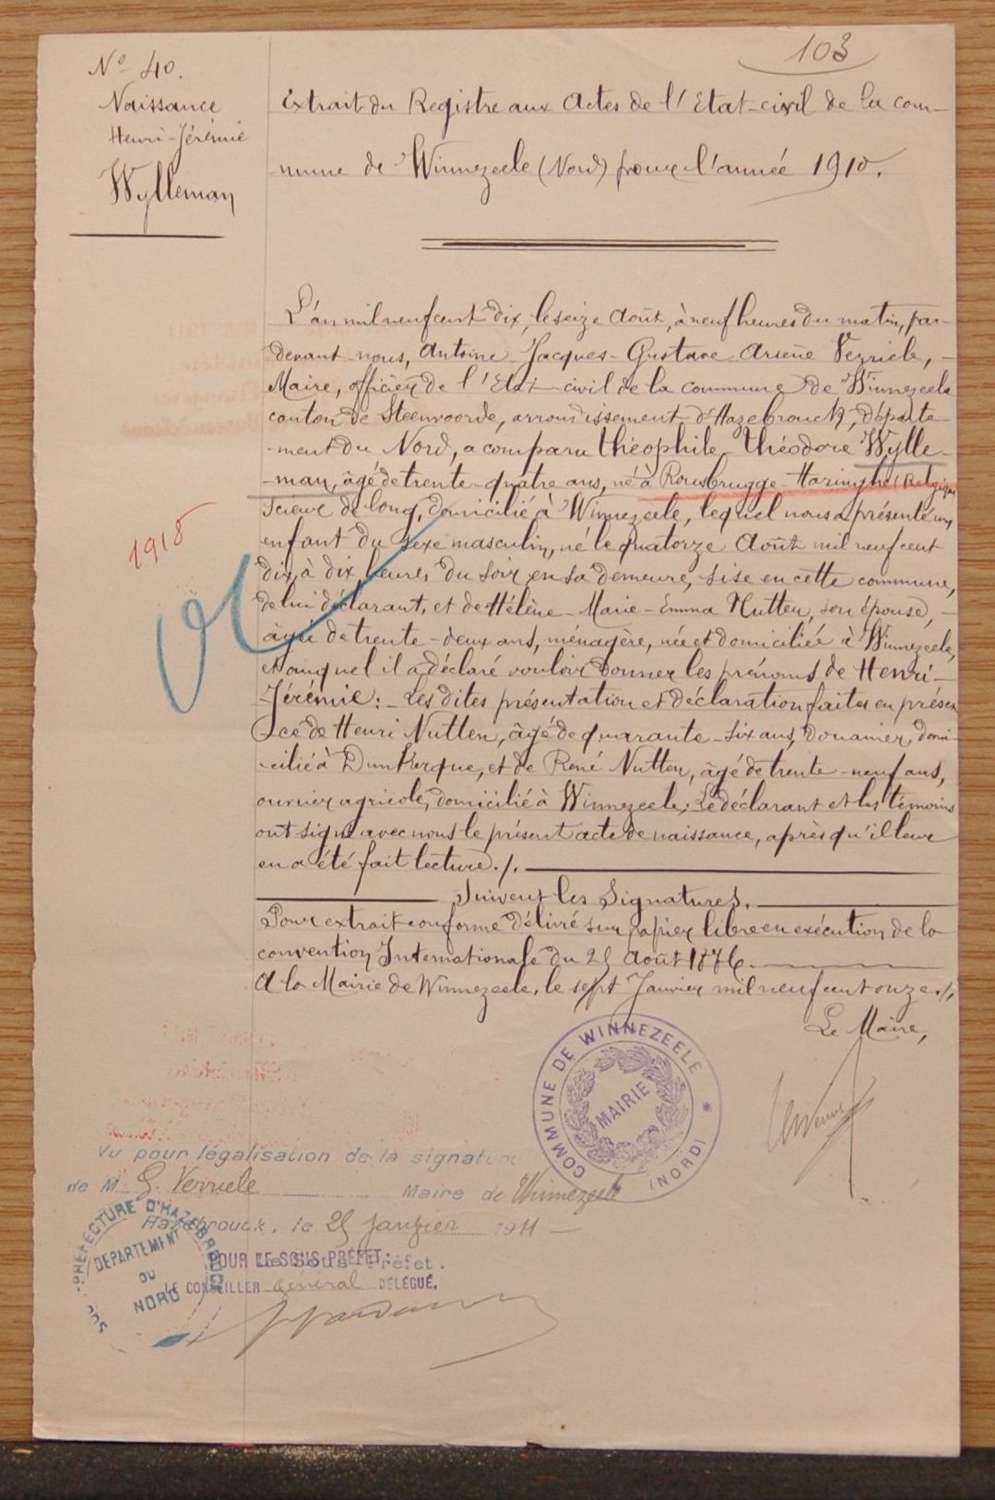 103
N° 40.
Naissance
Henri-Jérémie
Wylleman
Extrait du Registre aux Actes de l'Etat-civil de la com-
-mune de Winnezeele (Nord) pour l'année 1910.
L'an mil neuf cent dix, le seize Août, à neuf heures du matin, par-
devant nous, Antoine Jacques-Gustave Arsène Verriele,
Maire, officier de l'Etat-civil de la commune de Winnezeele
canton de Steenvoorde, arrondissement d'Hazebrouck, départe-
-ment du Nord, a comparu Théophile Théodore Wylle-
-man, âgé de trente-quatre ans, né à Rousbrugge-Haringhe (Belgique
scieur de long, domicilié à Winnezeele, lequel nous a présenté un
enfant du sexe masculin, né le quatorze Août mil neuf cent
dix, à dix heures du soir en sa demeure, sise en cette commune,
de lui déclarant, et de Hélène-Marie-Emma Nutten, son épouse,
âgée de trente-deux ans, ménagère, née et domiciliée à Winnezeele,
et auquel il a déclaré vouloir donner les prénoms de Henri-
Jérémie: Les dites présentation et déclaration faites en présen
ce de Henri Nutten, âgé de quarante-six ans, Douanier, domi-
-cilié à Dunkerque, et de René Nutten, âgé de trente-neuf ans,
ouvrier agricole, domicilié à Winnezeele; Le déclarant et les témoins
ont signé avec nous le présent acte de naissance, après qu'il leur
en a été fait lecture./.
Suivent les Signatures.
Pour extrait conforme délivré sur papier libre en exécution de la
convention Internationale du 25 Août 1876.
A la Mairie de Winnezeele, le sept Janvier mil neuf cent onze./.
Le Maire,
1918
COMMUNE DE WINNEZEELE
MAIRIE
(NORD)
Vu pour légalisation de la signature
de M G. Verriele Maire de Winnezeele
Hazebrouck, le 25 janvier 1911
Le Sous-Préfet.
POUR LE SOUS-PRÉFET:
LE CONSEILLER Général DÉLÉGUÉ,
SOUS-PRÉFECTURE D'HAZEBROUCK
DÉPARTEMENT
DU
NORD